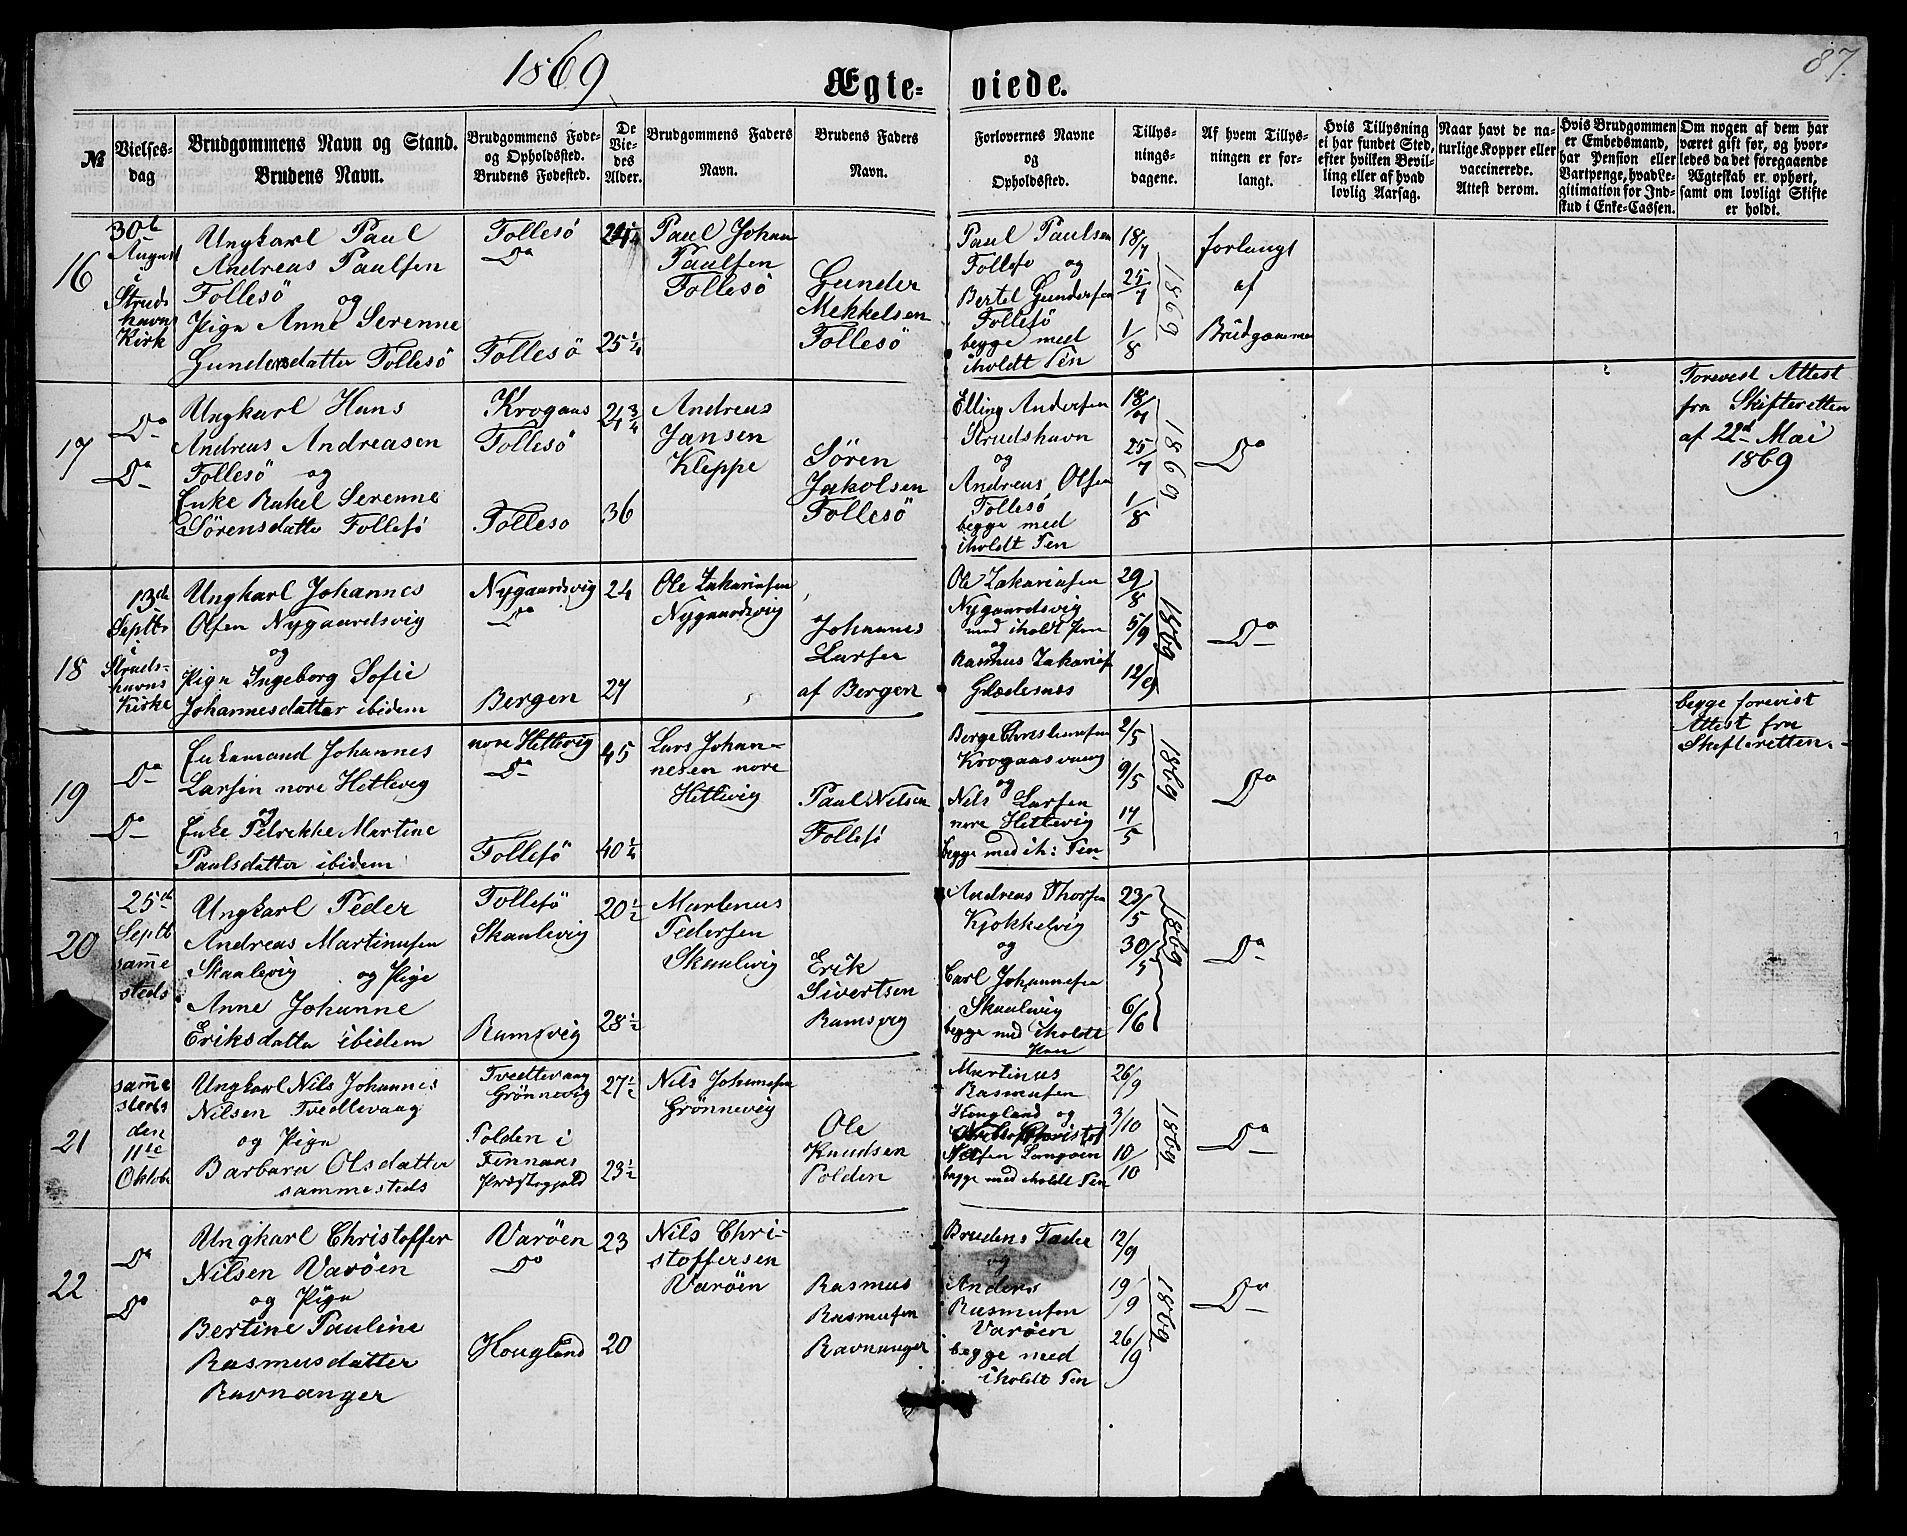 1869
87.
Ægte-
viede.
№
Vielses-
dag
Brudgommens Navn og Stand.
Brudens Navn.
Brudgommens Føde-
og Opholdssted.
Brudens Fødested.
De
Vie-
des
Alder.
Brudgommens Faders
Navn.
Brudens Faders
Navn.
Forlovernes Navne
og
Opholdssted.
Tillys-
nings-
dagene.
Af hvem Tillys-
ningen er for-
langt.
Hvis Tillysning
ei har fundet Sted,
efter hvilken Bevil-
ling eller af hvad
lovlig Aarsag.
Naar havt de na-
turlige Kopper eller
vaccinerede.
Attest derom.
Hvis Brudgommen
er Embedsmand,
har Pension eller
Vartpenge, hvad Le-
gitimation for Ind-
skud i Enke-Cassen.
Om nogen af dem har
været gift før, og hvor-
ledes da det foregaaende
Ægteskab er ophørt,
samt om lovligt Skifte
er holdt.
16
30te
August
i
Struds
havns
Kirk
Ungkarl Paul
Andreas Paulsen
Follesö og
Pige Anne Serenne
Gundersdatter Follesö
Follesö
Do
Follesö
25 1/4
Paul Johan
Paulsen
Follesö
Gunder
Mekkelsen
Follesö
Paul Paulsen
Follesö og
Bertel Gundersen
Follesö
begge med
iholdt Pen
18/7
25/7
1/8
1869
forlangt
af
Brudgommen
17
Do
Do
Ungkarl Hans
Andreas Andreasen
Follesö og
Enke Rakel Serenne
Sörensdatter Follesö
Krogaas
Follesö
Follesö
21 3/4
36
Andreas
Jansen
Kleppe
Sören
Jakobsen
Follesö
Elling Andersen
Strudshavn
og
Andreas Olsen
Follesö
begge med
iholdt Pen
18/7
25/7
1/8
1869
Do
Forevist Attest
fra Skifteretten
af 22de Mai
1869
18
13de
Septbr
i
Struds-
havns
Kirke
Ungkarl Johannes
Olsen Nygaardsvig
og
Pige Ingeborg Sofie
Johannesdatter ibidem
Nygaardsvig
Do
Bergen
24
27
Ole Zakariasen
Nygaardsvig
Johannes
Larsen
af Bergen
Ole Zakariasen
Nygaardsvig
med iholdt Pen
og
Rasmus Zakarias
29/8
5/9
12/9
1869
Do
19
Do
Do
Enkemand Johannes
Larsen nore Hetlevig
og
Enke Petrikke Martine
Paulsdatter ibidem
nore Hetlevig
Do
Follesö
45
40 1/4
Lars Johan-
nesen nore
Hetlevig
Paul Nilsen
Follesö
Berge Christensen
Krogaasvaag
og
Nils Larsen
nore Hetlevig
begge med ih: Pen
2/5
9/5
17/5
1869
Do
begge forevist
Attest fra
Skifteretten.
20
25de
Septb
samme
steds
Ungkarl Peder
Andreas Martinusen
Skaalevig og Pige
Anne Johanne
Eriksdatter ibidem
Follesö
Skaalevig
Ramsvig
20 1/2
28 1/2
Martinus
Pedersen
Skaalevig
Erik
Sivertsen
Ramsvig
Andreas Thorsen
Kjökkelvig
og
Carl Johannesen
Skaalevig
begge med iholdt
Pen
23/5
30/5
6/6
1869
Do
21
samme
steds
den
11te
Oktobe
Ungkarl Nils Johannes
Nilsen Tvedtevaag
og Pige
Barbara Olsdatter
sammesteds
Tvedtevaag
Grönnevig
Polden i
Finnaas
Præstegjeld
27 1/2
23 1/2
Nils Johannesen
Grönnevig
Ole
Knudsen
Polden
Martinus
Rasmusen
Hougland og
begge med iholdt Pen
26/9
3/10
10/10
1869
Do
22
Do
Do
Ungkarl Christoffer
Nilsen Varöen
og Pige
Bertine Pauline
Rasmusdatter
Ravnanger
Varöen
Do
Hougland
23
20
Nils Chri-
stoffersen
Varöen
Rasmus
Rasmusen
Ravnanger
Brudens Fader
og
Anders
Rasmusen
Varöen
begge med
iholdt Pen
12/9
19/9
26/9
1869
Do